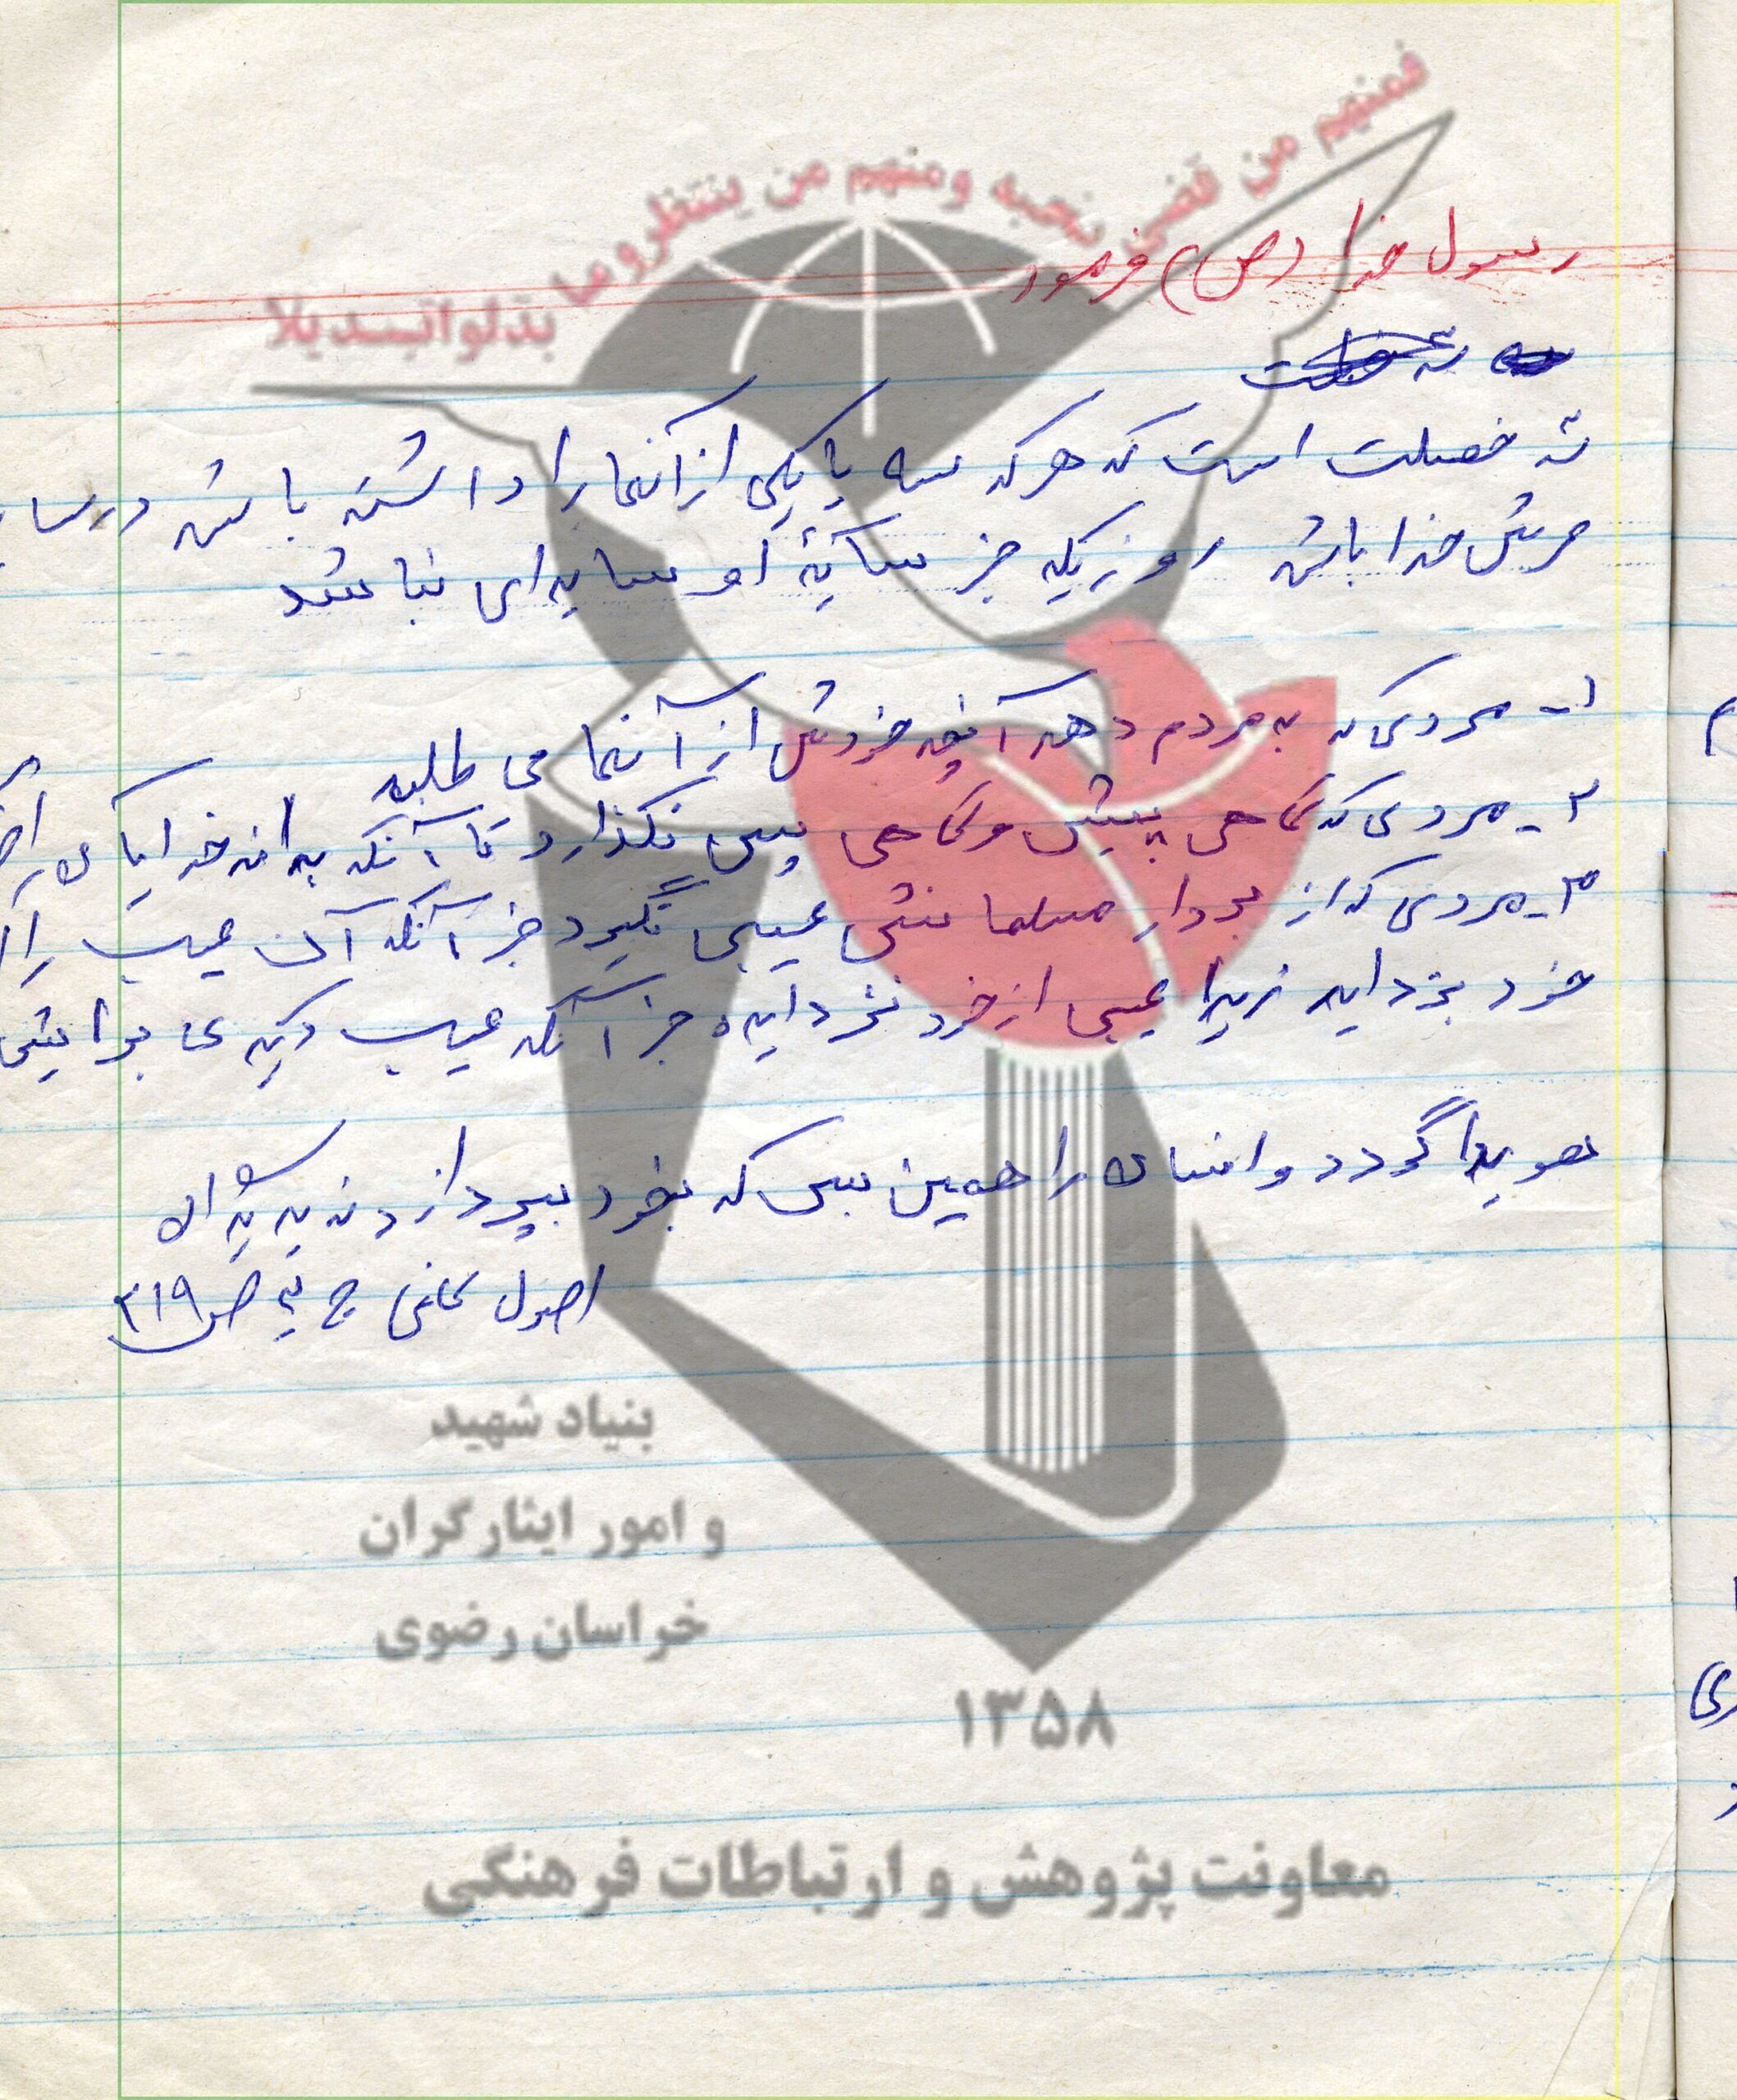 فمنهم من قضی نحبه ومنهم من ینتظر وما بدلوا تبدیلا
رسول خدا (ص) فرمود
سه خصلت است که هر که سه یا یکی از آنها را داشته باشد در سا
عرش خدا باشد روزیکه جز سایهٔ او سایه ای نباشد
۱- مردی که به مردم دهد آنچه خودش از آنها می طلبد
۲- مردی که گاهی پیش و گاهی پس نگذارد تا آنکه بداند خدا یا
۳- مردی که از برادر مسلمانش عیبی نگیرد جز آنکه آن عیب را از
خود بزداید زیرا عیبی از خود نزداید جز آنکه عیب دیگری برایش
هویدا گردد و انسان را همین بس که بخود بپردازد نه به دیگران
اصول کافی ج ۳ ص ۲۱۹
بنیاد شهید
و امور ایثارگران
خراسان رضوی
۱۳۵۸
معاونت پژوهش و ارتباطات فرهنگی